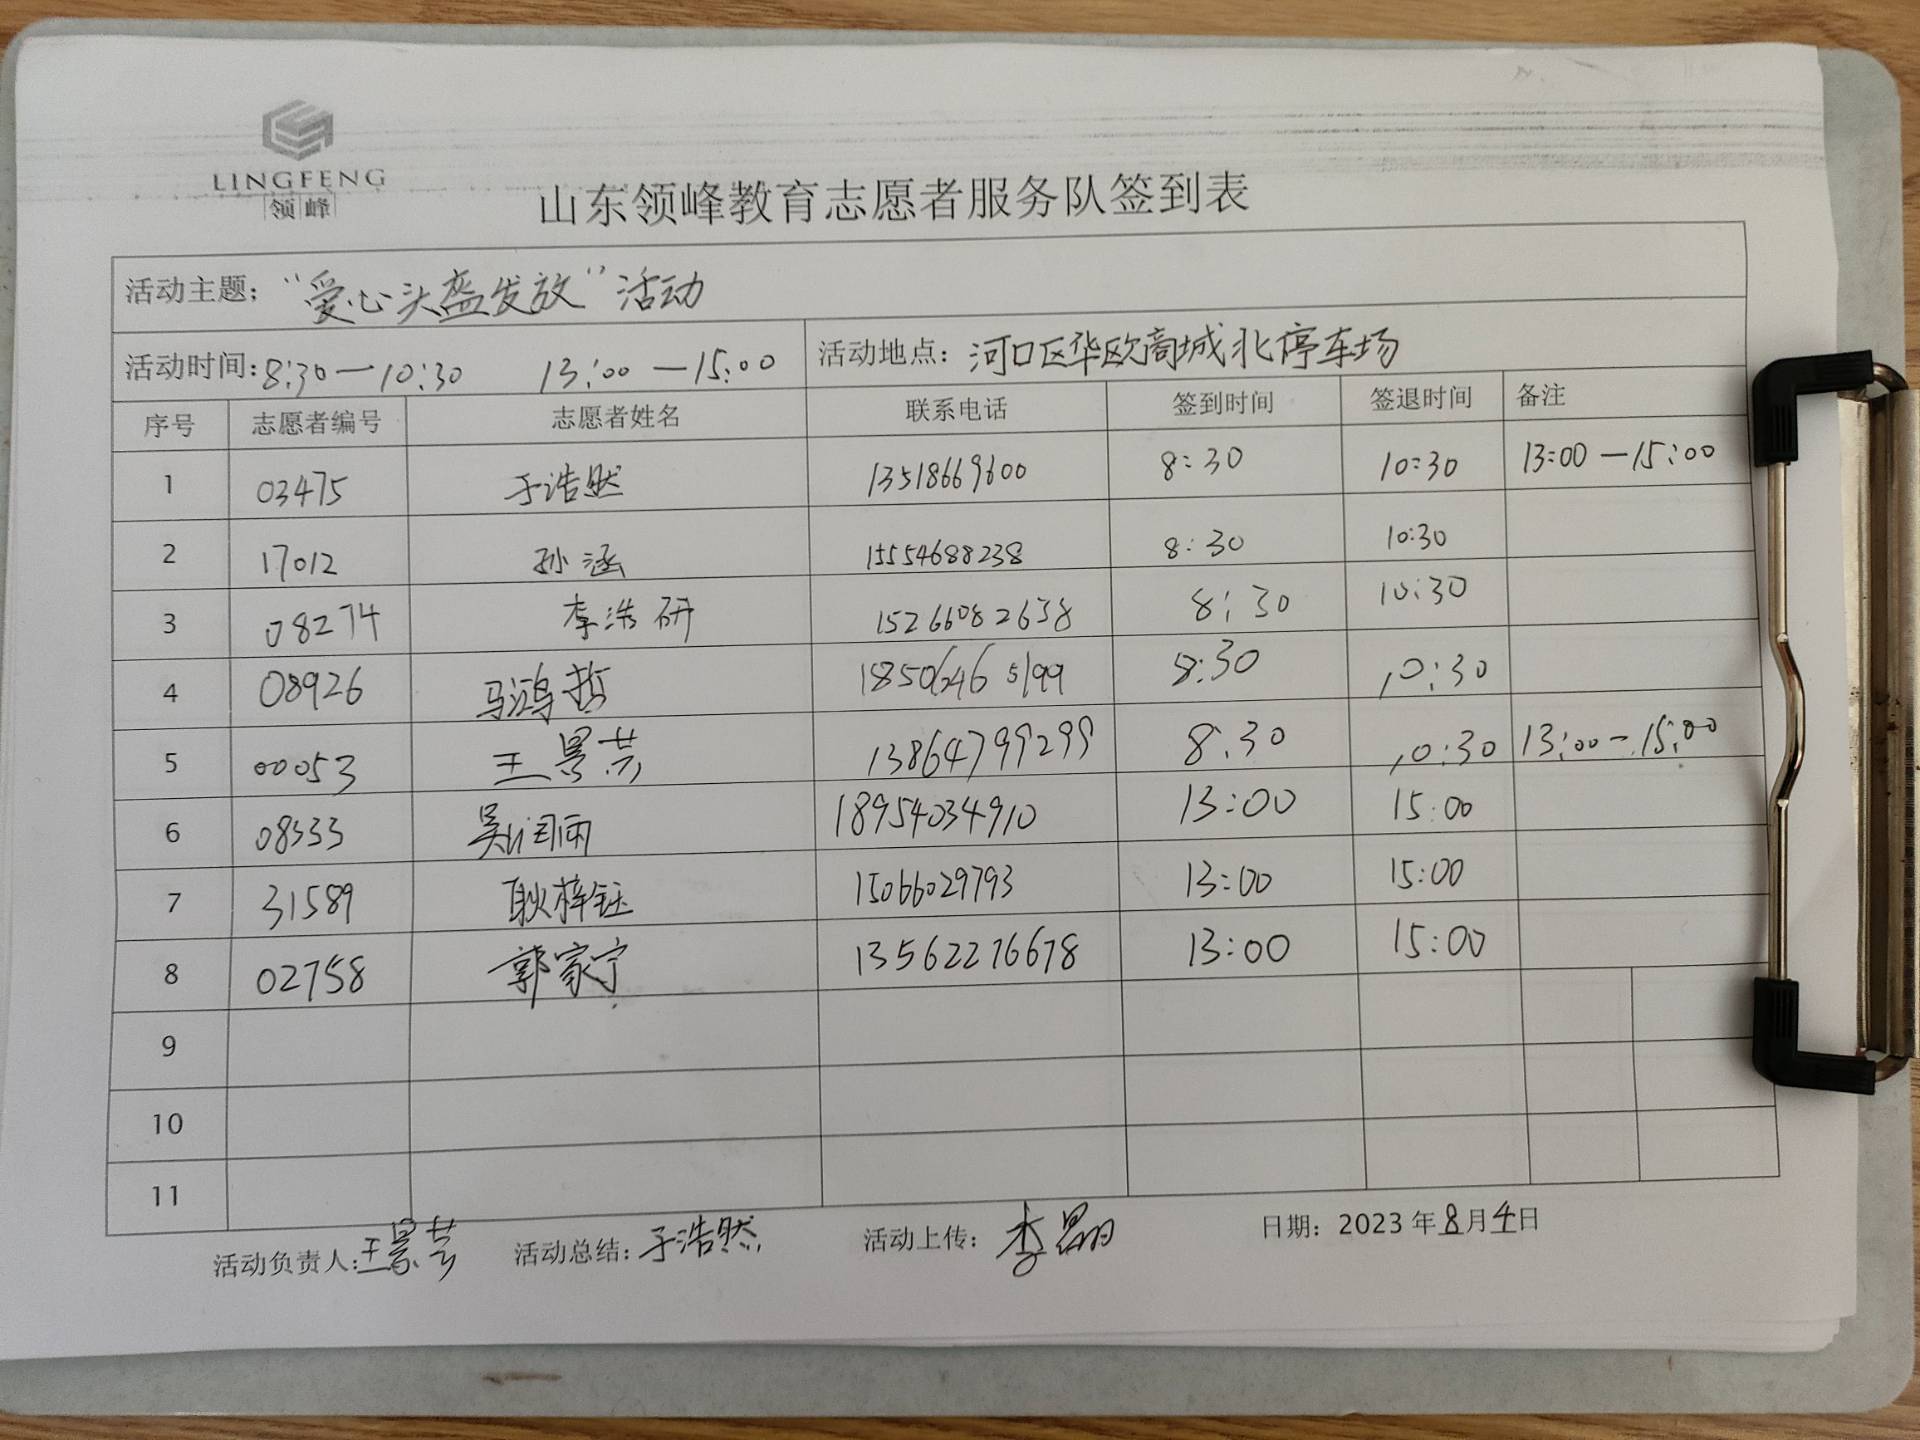 LINGFENG
领峰
山东领峰教育志愿者服务队签到表
活动主题：“爱心头盔发放”活动
活动时间：8:30—10:30 13:00—15:00 活动地点：河口区华欧商城北停车场
序号 志愿者编号 志愿者姓名 联系电话 签到时间 签退时间 备注
1 03475 于浩然 13518669600 8:30 10:30 13:00—15:00
2 17012 孙涵 15554688238 8:30 10:30
3 08274 李浩研 15266082638 8:30 10:30
4 08926 马鸿哲 18506465199 8:30 10:30
5 00053 王景芸 13864799299 8:30 10:30 13:00—15:00
6 08333 吴润雨 18954034910 13:00 15:00
7 31589 耿梓钰 15066029793 13:00 15:00
8 02758 郭家宁 13562276678 13:00 15:00
9
10
11
活动负责人：王景芸 活动总结：于浩然 活动上传：李 日期：2023年8月4日